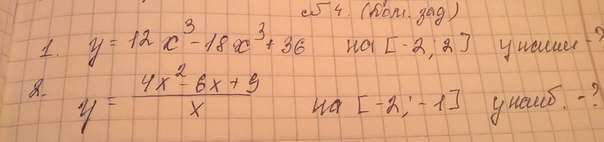 № 4. (Дом. зад)
1. y = 12x³ - 18x³ + 36 на [-2; 2] y наим - ?
2. y = (4x² - 6x + 9)/x на [-2; -1] y наиб. - ?